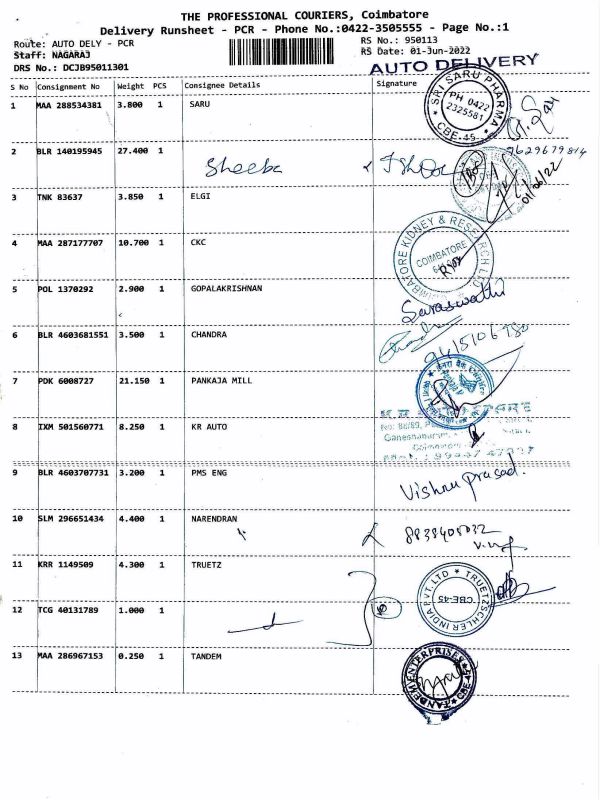 THE PROFESSIONAL COURIERS, Coimbatore
Delivery Runsheet - PCR - Phone No.:0422-3505555 - Page No.:1
Route: AUTO DELY - PCR
RS No.: 950113
Staff: NAGARAJ
RS Date: 01-Jun-2022
DRS No.: DCJB95011301
AUTO DELIVERY
S No Consignment No Weight PCS Consignee Details Signature
1 MAA 288534381 3.800 1 SARU
SRI SARU PHARMA
PH 0422
2325581
CBE-45
2 BLR 140195945 27.400 1 Sheeba
9629679814
01/06/22
3 TNK 83637 3.850 1 ELGI
4 MAA 287177707 10.700 1 CKC
COIMBATORE KIDNEY & RESEARCH
COIMBATORE
5 POL 1370292 2.900 1 GOPALAKRISHNAN
Saraswathi
6 BLR 4603681551 3.500 1 CHANDRA
9415106980
7 PDK 6008727 21.150 1 PANKAJA MILL
8 IXM 501560771 8.250 1 KR AUTO
No: 88/89,
Ganeshapuram,
9 BLR 4603707731 3.200 1 PMS ENG
Vishnu Prasad.
10 SLM 296651434 4.400 1 NARENDRAN
8838408032
11 KRR 1149509 4.300 1 TRUETZ
TRUETZSCHLER INDIA PVT. LTD
CBE-45
12 TCG 40131789 1.000 1
13 MAA 286967153 0.250 1 TANDEM
TANDEM ENTERPRISES
CBE-45